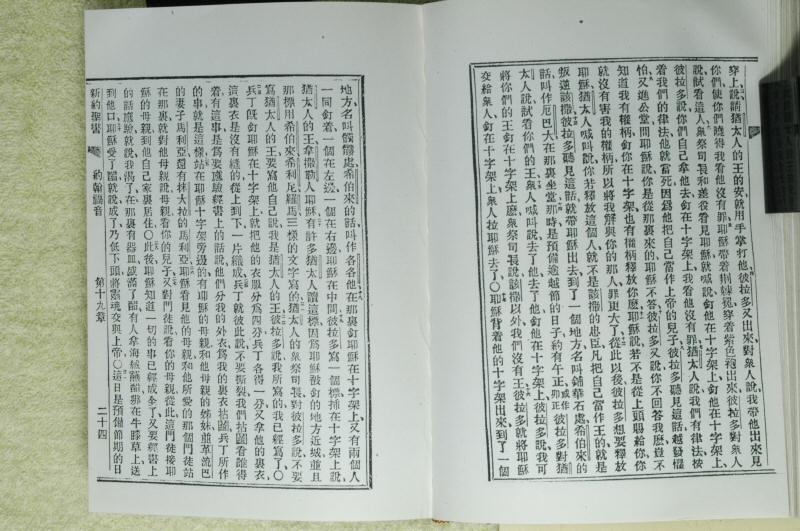 穿上說請猶太人的王的安就用手掌打他彼拉多又出來對衆人說我帶他出來見
你們使你們曉得我看他沒有罪耶穌就帶着荊棘冕穿着紫色袍出來彼拉多對衆人
說試看這人衆祭司長和差役看見耶穌就喊說釘他在十字架上釘他在十字架上
彼拉多說你們自己拿他去釘在十字架上我看他沒有罪猶太人說我們有律法按
着我們的律法他就當死因爲他把自己當作上帝的兒子彼拉多聽見這話越發懼
怕又進公堂問耶穌說你是從那裏來的耶穌不答彼拉多又說你不回答我麽豈不
知道我有權柄釘你在十字架也有權柄釋放你麽耶穌說若不是從上頭賜給你你
就沒有害我的權柄所以將我解與你的那人罪更大了從此以後彼拉多想要釋放
耶穌猶太人喊叫說你若釋放這個人就不是該撒的忠臣凡把自己當作王的就是
叛逆該撒彼拉多聽見這話就帶耶穌出去到了一個地方名叫鋪華石處希伯來的
話叫作厄巴大在那裏坐堂那時是預備逾越節的日子約有午正或作卯正彼拉多對猶
太人說試看你們的王衆人喊叫說去了他去了他釘他在十字架上彼拉多說我可
將你們的王釘在十字架上麽衆祭司長說該撒以外我們沒有王彼拉多就將耶穌
交給衆人釘在十字架上衆人拉耶穌去了〇耶穌背着他的十字架出來到了一個
地方名叫髑髏處希伯來的話叫作各各他在那裏釘耶穌在十字架上又有兩個人
一同釘着一個在左邊一個在右邊耶穌在中間彼拉多寫一個標插在十字架上說
猶太人的王拿撒勒人耶穌有許多猶太人讀這標因爲耶穌被釘的地方近城並且
那標用希伯來希利尼羅馬三樣的文字寫的猶太人的衆祭司長對彼拉多說不要
寫猶太人的王要寫他自己說我是猶太人的王彼拉多說我所寫的我已經寫了〇
兵丁旣釘耶穌在十字架上就把他的衣服分爲四分兵丁各得一分又拿他的裏衣
這裏衣是沒有縫的從上到下一片織成兵丁就彼此說不要撕裂我們拈鬮看誰得
着有這事是爲要應驗經書上的話說他們分我的外衣爲我的裏衣拈鬮兵丁所作
的事就是這樣站在耶穌十字架旁邊的有耶穌的母親和他母親的姊妹並革流巴
的妻子馬利亞還有抹大拉的馬利亞耶穌看見他的母親和他所愛的那個門徒站
在那裏就對他母親說母親看你的兒子又對門徒說看你的母親從此這門徒接耶
穌的母親到他自己家裏居住〇此後耶穌知道一切的事已經成全了又要經書上
的話應驗就說我渴了在那裏有器皿盛滿了醋有人拿海絨蘸醋綁在牛膝草上送
到他口耶穌受了醋就說成了乃低下頭將靈魂交與上帝〇這日是預備節期的日
新約聖書 約翰福音 第十九章 二十四